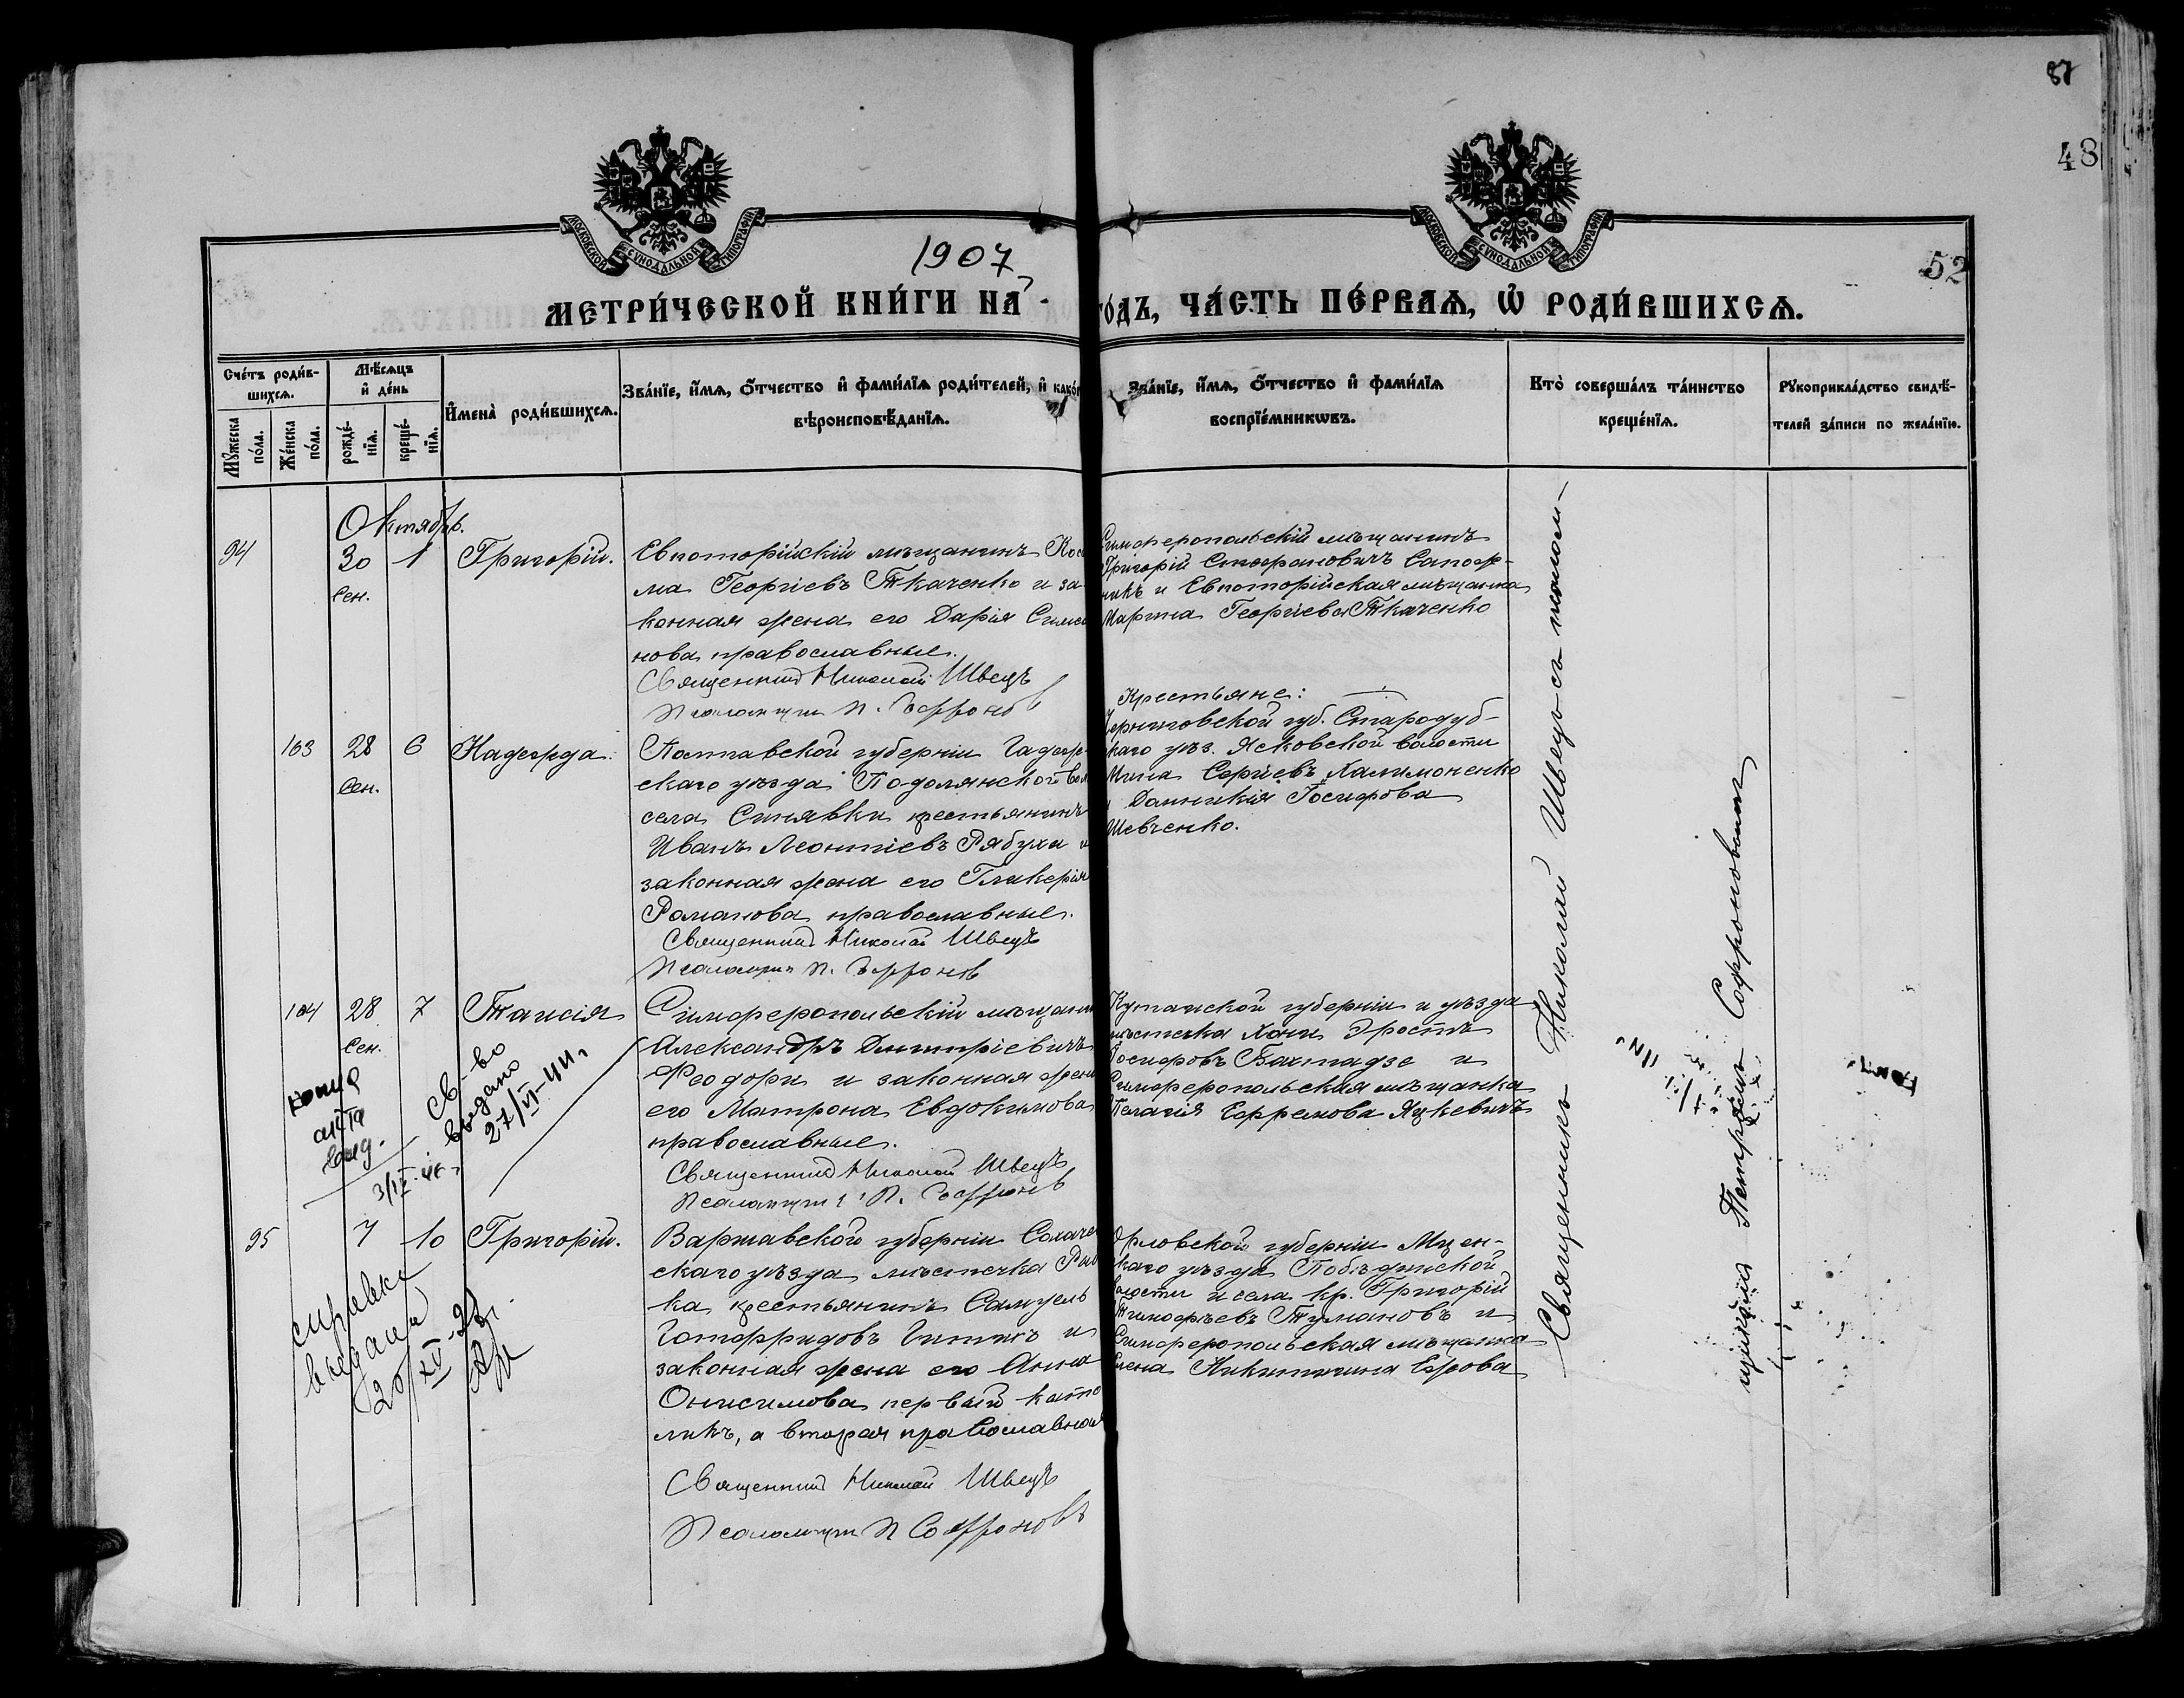 87
48
52
МОСКОВСКОЙ СѴНОДАЛЬНОЙ ТИПОГРАФІИ
МОСКОВСКОЙ СѴНОДАЛЬНОЙ ТИПОГРАФІИ
1907
МЕТРИ́ЧЕСКОЙ КНИ́ГИ НА
ГО́ДЪ, ЧА́СТЬ ПЕ́РВАѦ, Ѡ҆ РОДИ́ВШИХСѦ.
Сче́тъ роди́в-
шихсѧ.
Мꙋ́жеска по́ла.
Же́нска по́ла.
Мѣ́сѧцъ
и҆ де́нь
рожде́-
нїѧ.
креще́-
нїѧ.
И҆мена̀ роди́вшихсѧ.
Зва́нїе, и҆́мѧ, ѻ҆́тчество и҆ фами́лїѧ роди́телей, и҆ како́г
вѣроисповѣ́данїѧ.
Зва́нїе, и҆́мѧ, ѻ҆́тчество и҆ фами́лїѧ
воспрїе́мникѡвъ.
Кто̀ соверша́лъ та́инство
креще́нїѧ.
Рꙋкоприкла́дство свидѣ́-
телей за́писи по жела́нїю.
Октябрь.
94 30 1 Григорій.
Сен.
Евпоторійскій мѣщанинъ Кос
ма Георгіевъ Ткаченко и за-
конная жена его Дарія Симо
нова православные.
Священник Николай Швецъ
Псаломщик П. Софронов
Симферопольскій мѣщанинъ
Григорій Стефановичъ Сапож-
никъ и Евпоторійская мѣщанка
Марѳа Георгіева Ткаченко
103 28 6 Надежда.
Сен.
Полтавской губерніи Гадяч-
скаго уѣзда Подолянской вол
села Синявки крестьянинъ
Иванъ Леонтіевъ Рябуха и
законная жена его Гликерія
Романова православные.
Священник Николай Швецъ
Псаломщик П. Софронов
Крестьяне:
Черниговской губ. Стародуб-
скаго уѣз. Ясковской волости
Мина Сергіевъ Халимоненко
и Домникія Іосифова
Шевченко.
104 28 7 Таисія
Сен.
Симферопольскій мѣщанин
Александръ Димитріевичъ
Феодори и законная жена
его Матрона Евдокимова
православные.
Священник Николай Швецъ
Псаломщик П. Софронов
Кутаиской губерніи и уѣзда
мѣстечка Хони Эростъ
Іосифовъ Бахтадзе и
Симферопольская мѣщанка
Пелагія Ефремова Яцкевичъ
копия
акта
выд.
3/IX-46 г.
Св-во
выдано
27/VI-41 г.
95 7 10 Григорій.
Варшавской губерніи Сохаче
скаго уѣзда мѣстечка Рав
ка крестьянинъ Самуель
Готфридовъ и
законная жена его Анна
Онисимова первый като
ликъ, а вторая православная
Священник Николай Швецъ
Псаломщик П Софроновъ
Орловской губерніи Мцен-
скаго уѣзда
волости и села кр. Григорій
Тимофѣевъ Тумановъ и
Симферопольская мѣщанка
Елена Никитична Ежова
справка
выдана
20/XII-29 г.
Священникъ Николай Швецъ съ псалом-
щикомъ Петромъ Софроновымъ